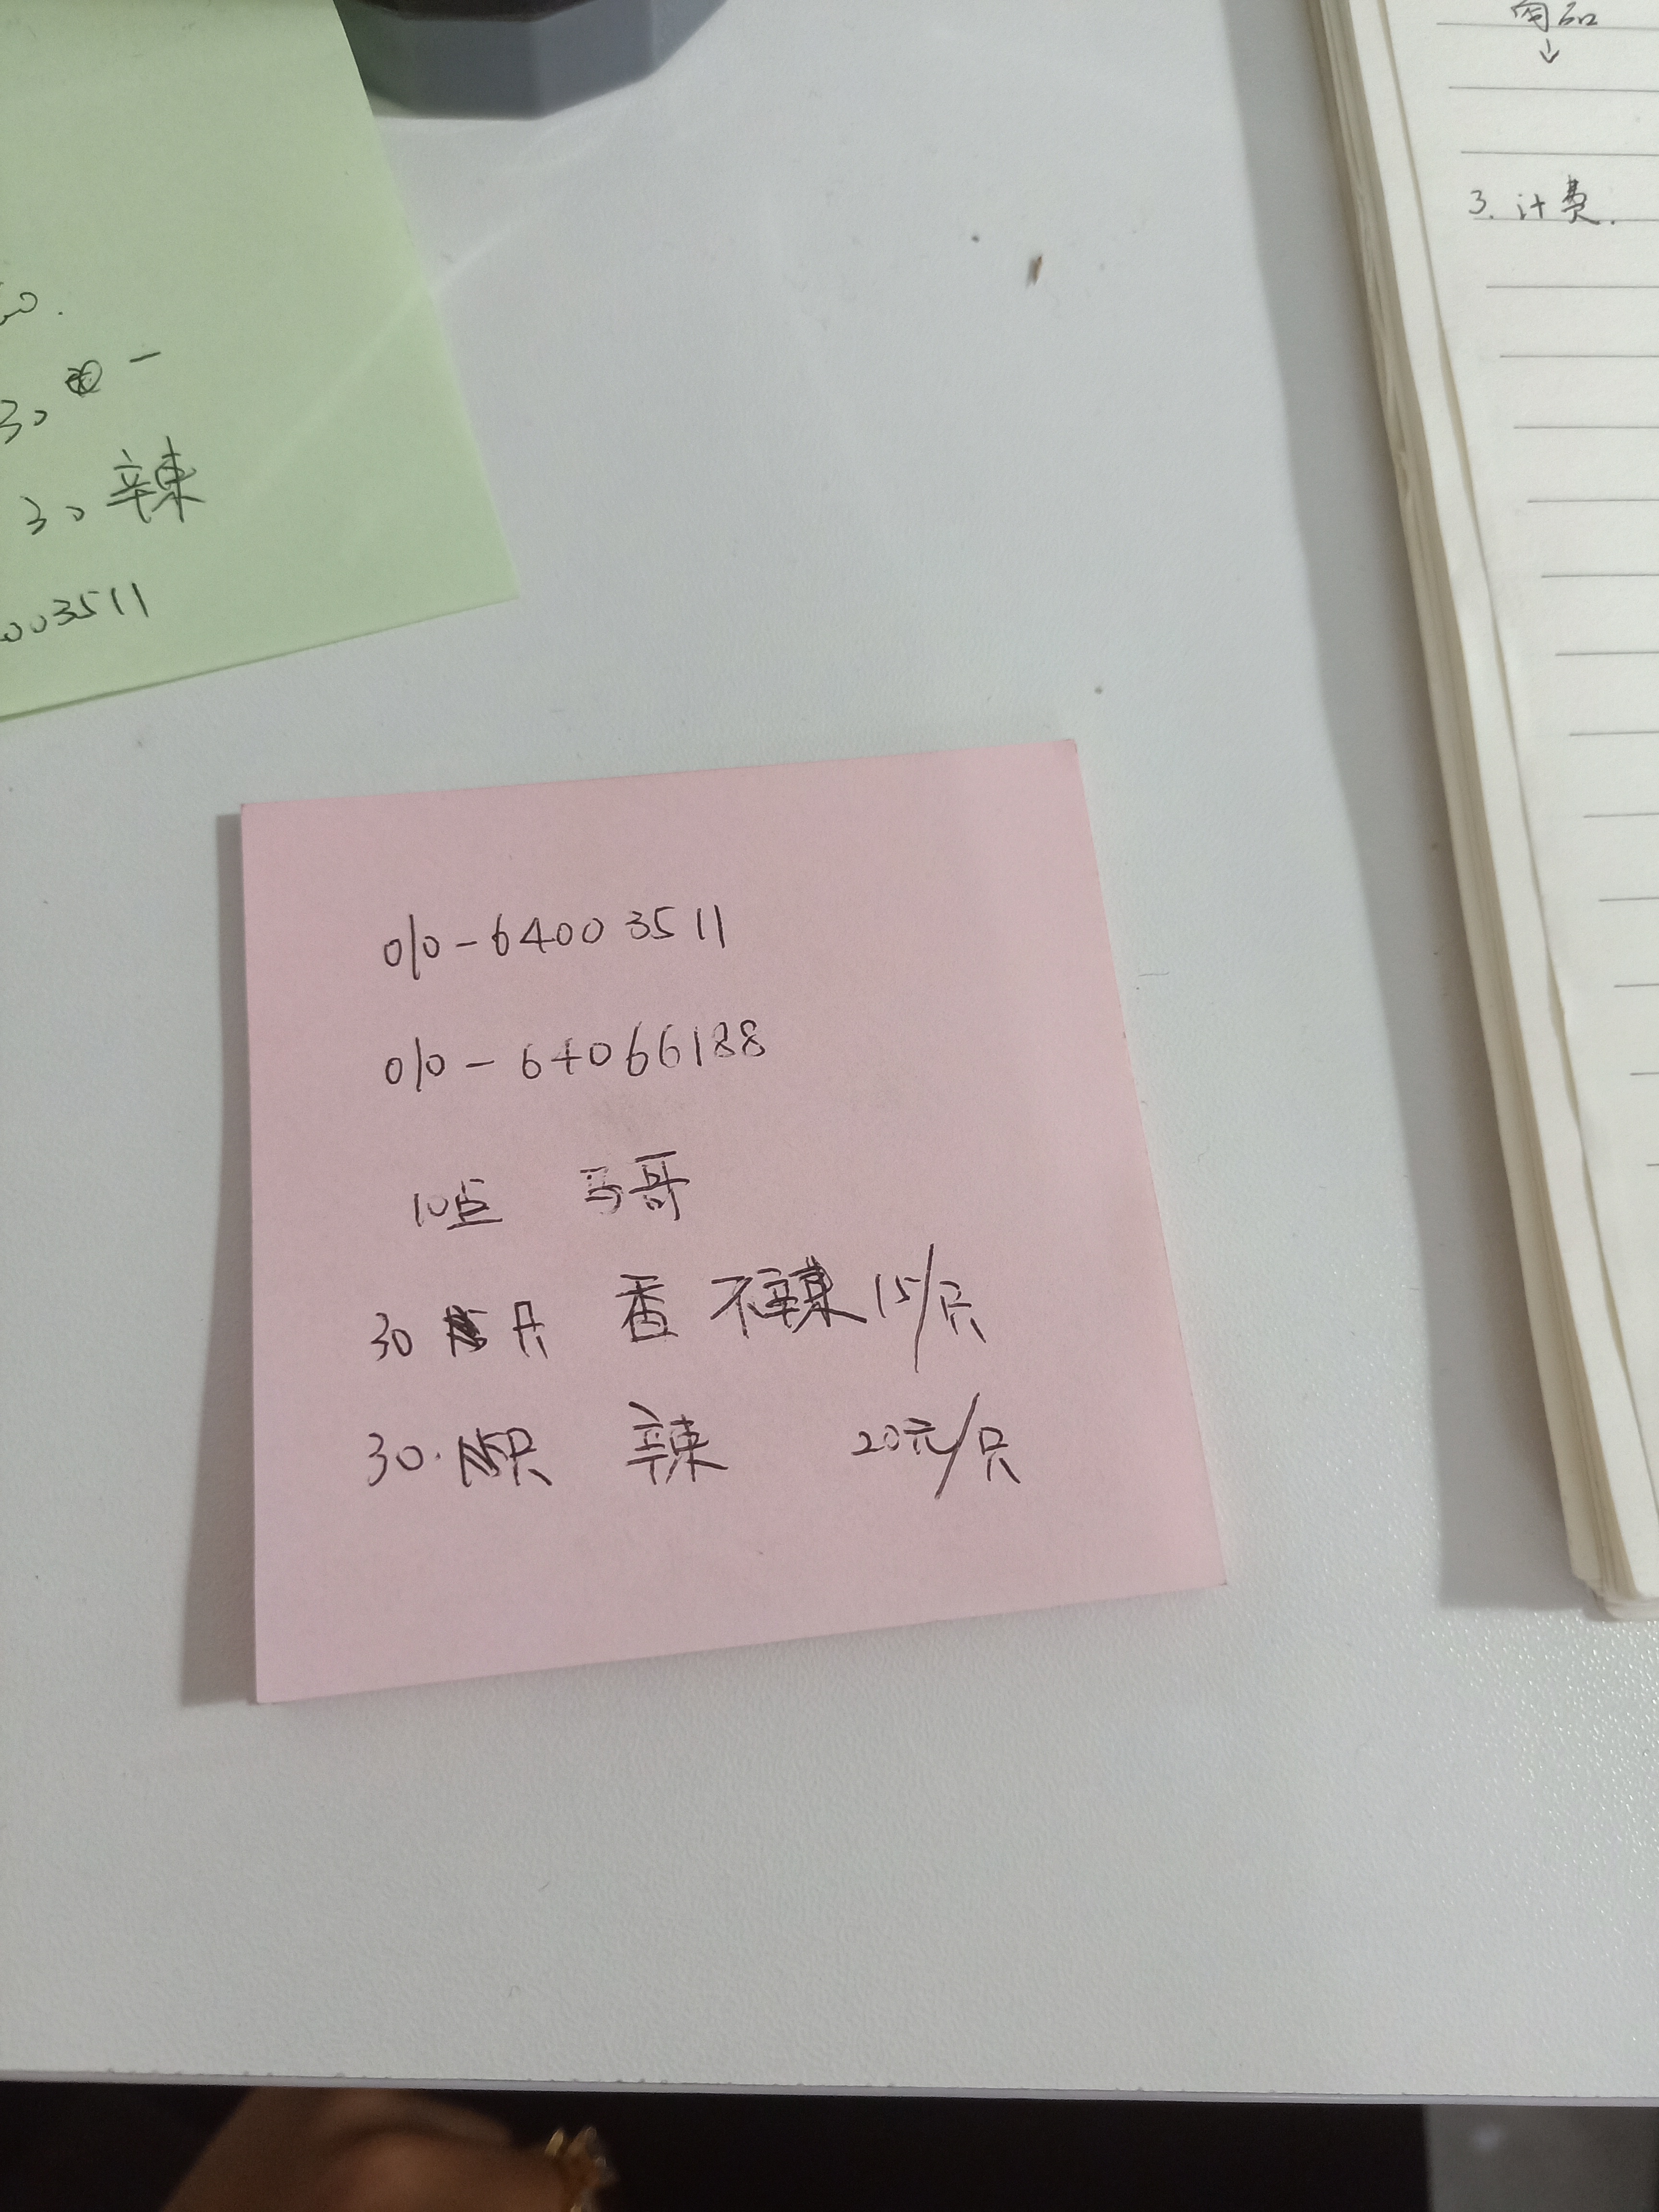 30
30 辣
003511
向品
↓
3. 计费.
010-64003511
010-64066188
10点 马哥
30 只 香 不辣 15/只
30. 只 辣 20元/只